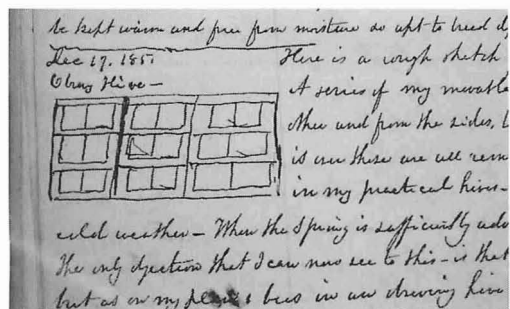 be kept warm and free from moisture so apt to breed
Dec 17. 185
Obsg Hive —
Here is a rough sketch
A series of my movable
other and from the sides,
is over these are all rem
in my practical hives —
cold weather — When the Spring is sufficiently adv
the only objection that I can now see to this — is that
but as on my plan bees in an hive